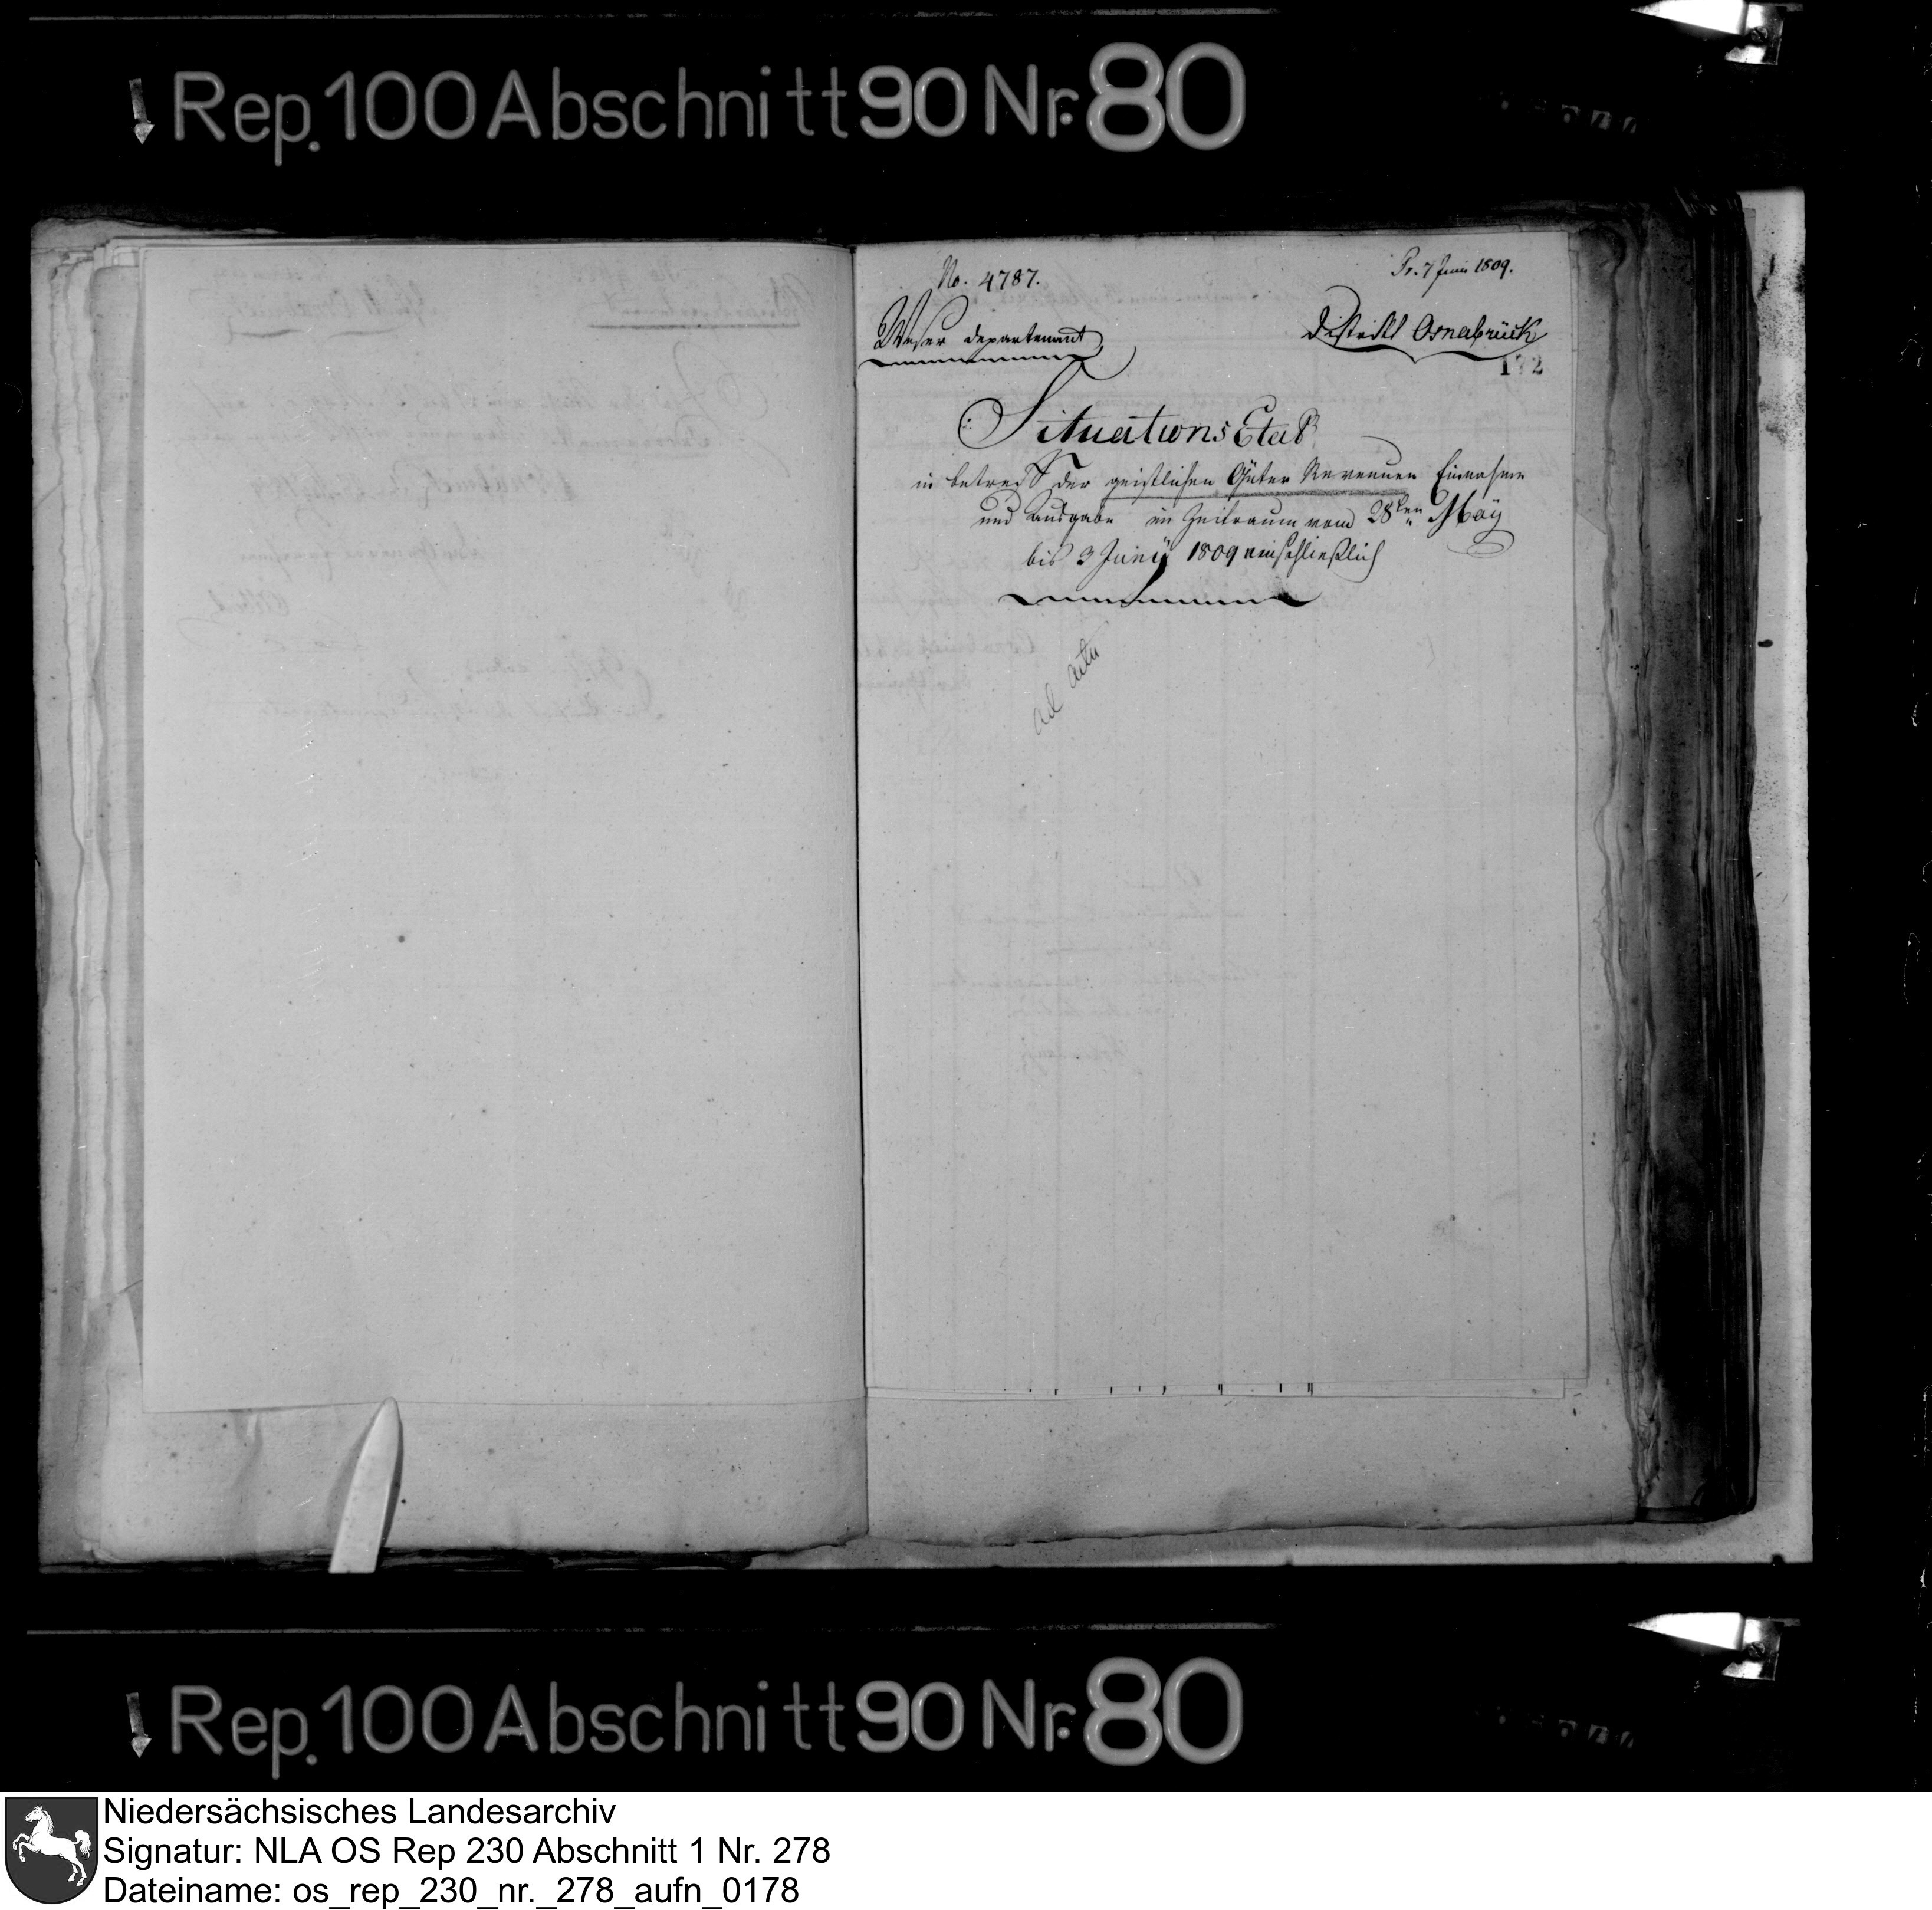 Rep. 100 Abschnitt 90 Nr. 80
No. 4787.
Pr. 7 Juni 1809.
Weser departement
District Osnabrück
172
Situations Etat
in betreff der geistlichen Güter Revenuen Einnahme
und Ausgabe im Zeitraum vom 28ten May
bis 3 Junÿ 1809 einschließlich
ad acta
Rep. 100 Abschnitt 90 Nr. 80
Niedersächsisches Landesarchiv
Signatur: NLA OS Rep 230 Abschnitt 1 Nr. 278
Dateiname: os_rep_230_nr._278_aufn_0178